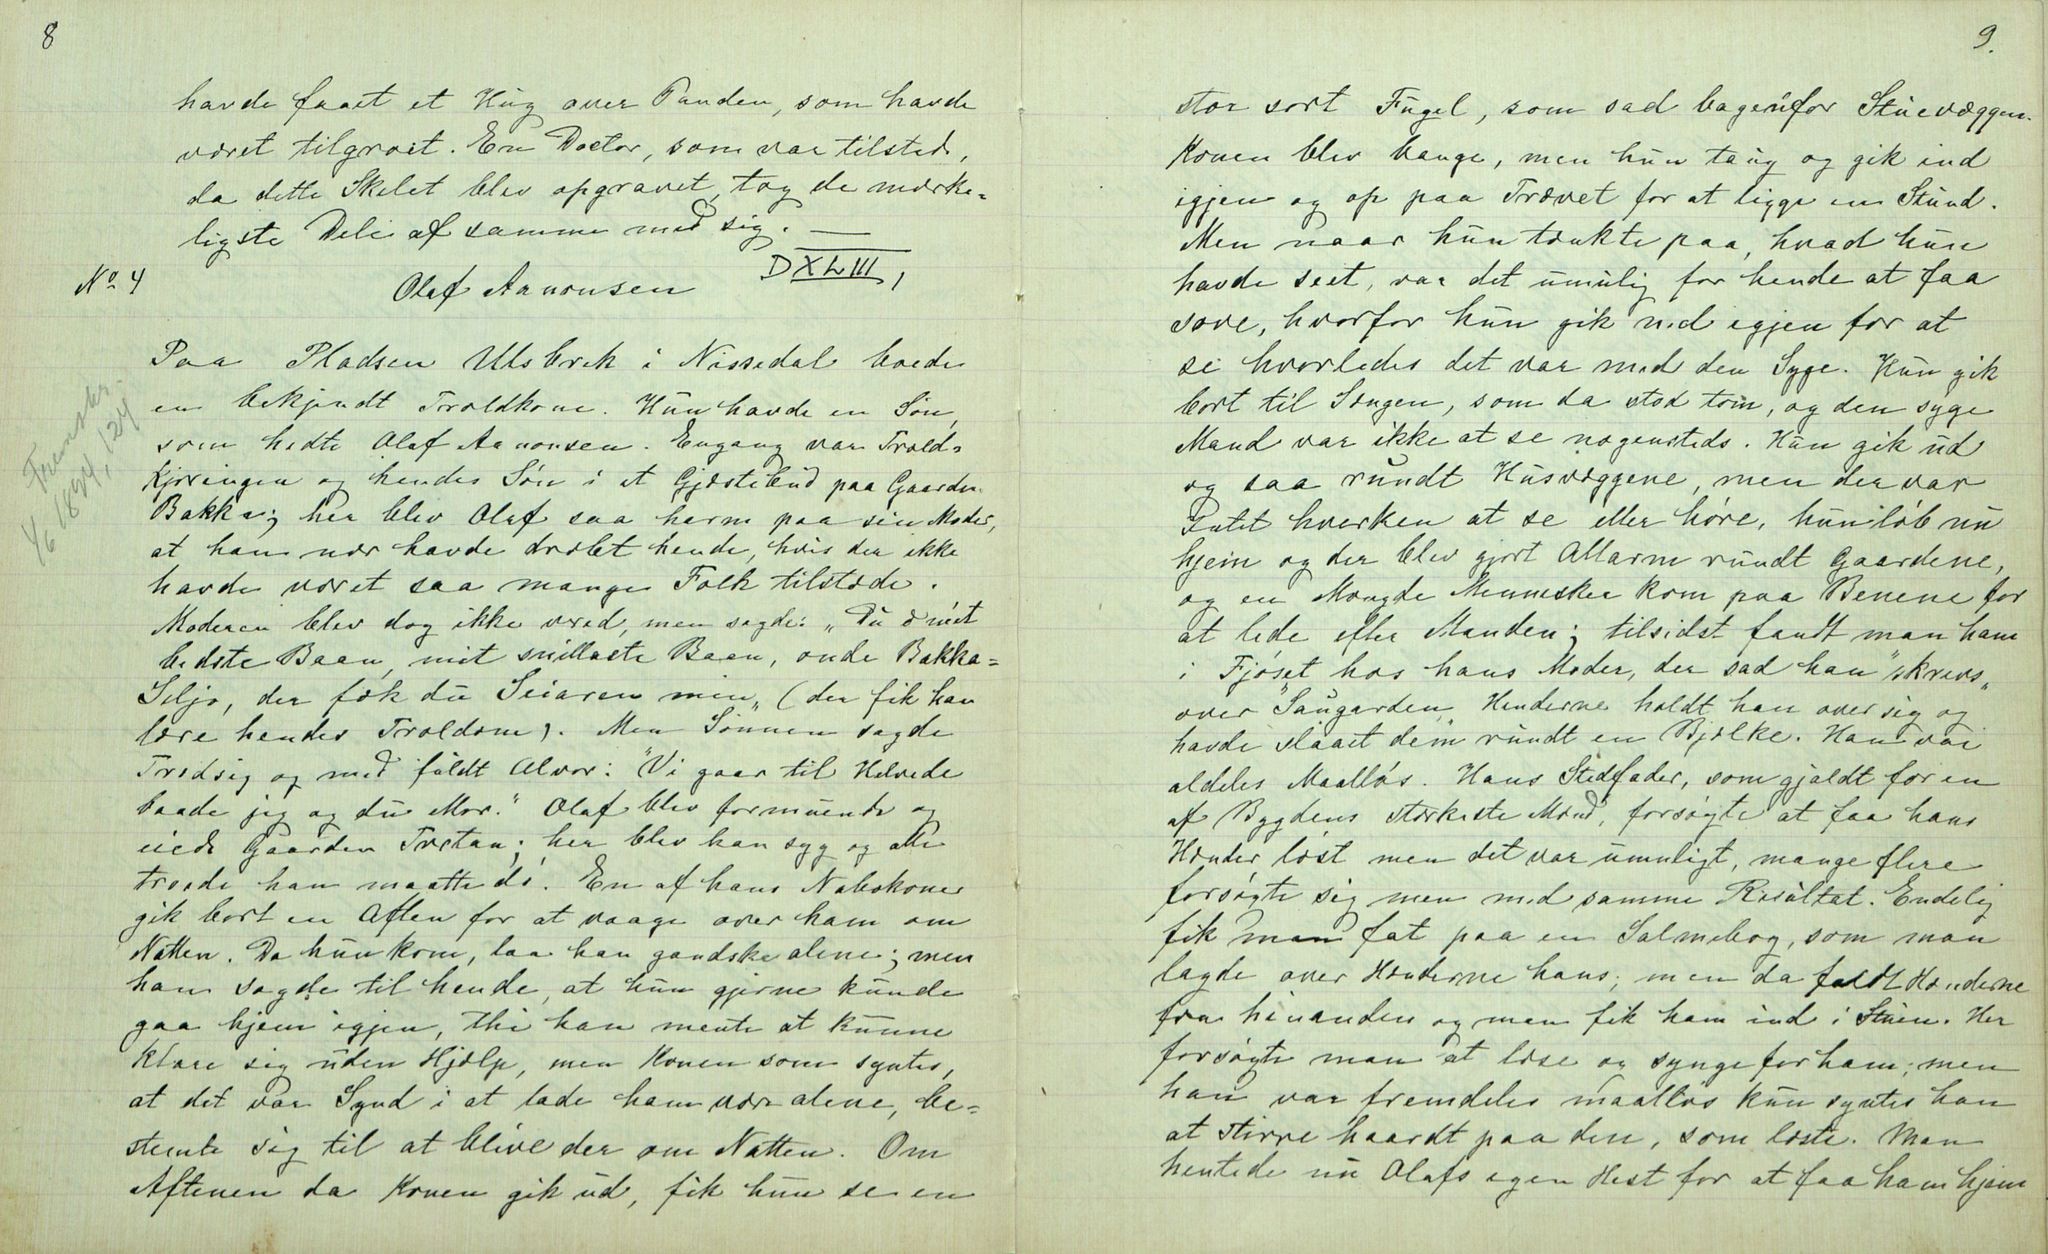 8
havde faaet et Hug over Panden, som havde
været tilgroet. En Doctor, som var tilstede,
da dette Skelet blev opgravet, tog de mærke-
ligste Dele af samme med sig. —
DXLIII,
No 4
Olaf Aanonsen
Paa Pladsen Ulsbrek i Nissedal boede
en bekjendt Troldkone. Hun havde en Søn,
som hedte Olaf Aanonsen. Engang var Trold-
kjærringen og hendes Søn i et Gjæstebud paa Gaarden
Bakka; her blev Olaf saa harm paa sin Moder,
at han nær havde dræbt hende, hvis der ikke
havde været saa mange Folk tilstæde.
Moderen blev dog ikke vred, men sagde: „Du æ mit
bedste Baan, mit snillaste Baan, onde Bakka-
Seljo, der fæk du Seiaren min„ (der fik han
lære hendes Troldom). Men Sønnen sagde
Trodsig og med fuldt Alvor: "Vi gaar til Helvede
baade jeg og du Mor." Olaf blev formuende og
eiede Gaarden Tvetan; her blev han syg og alle
troede han maatte dø. En af hans Nabokoner
gik bort en Aften for at vaage over ham om
Natten. Da hun kom, laa han gandske alene; men
han sagde til hende, at hun gjerne kunde
gaa hjem igjen, thi han mente at kunne
klare sig uden Hjælp, men Konen som syntes,
at det var Synd i at lade ham være alene, be-
stemte sig til at blive der om Natten. Om
Aftenen da Konen gik ud, fik hun se en
1834, 124
9.
stor sort Fugel, som sad bagenfor Stuevæggen.
Konen blev bange, men hun taug og gik ind
igjen og op paa Trævet for at ligge en Stund.
Men naar hun tænkte paa, hvad hun
havde seet, var det umulig for hende at faa
sove, hvorfor hun gik ned igjen for at
se hvorledes det var med den Syge. Hun gik
bort til Sengen, som da stod tom, og den syge
Mand var ikke at se nogensteds. Hun gik ud
og saa rundt Husvæggene, men der var
Intet hverken at se eller høre, hun løb nu
hjem og der blev gjort Allarm rundt Gaardene,
og en Mængde Mennesker kom paa Benene for
at lede efter Manden; tilsidst fandt man ham
i Fjøset hos hans Moder, der sad han "skrevs„
over "Saugarden„ Henderne holdt han over sig og
havde slaaet dem rundt en Bjelke. Han var
aldeles Maalløs. Hans Stedfader, som gjaldt for en
af Bygdens stærkeste Mænd, forsøgte at faa hans
Hænder løst men det var umuligt, mange flere
forsøgte sig men med samme Resultat. Endelig
fik man fat paa en Salmebog, som man
lagde over Hænderne hans; men da faldt Hænderne
fra hinanden og man fik ham ind i Stuen. Her
forsøgte man at læse og synge for ham; men
han var fremdeles maalløs kun syntes han
at stirre haardt paa den, som læste. Man
hentede nu Olafs egen Hest for at faa ham hjem